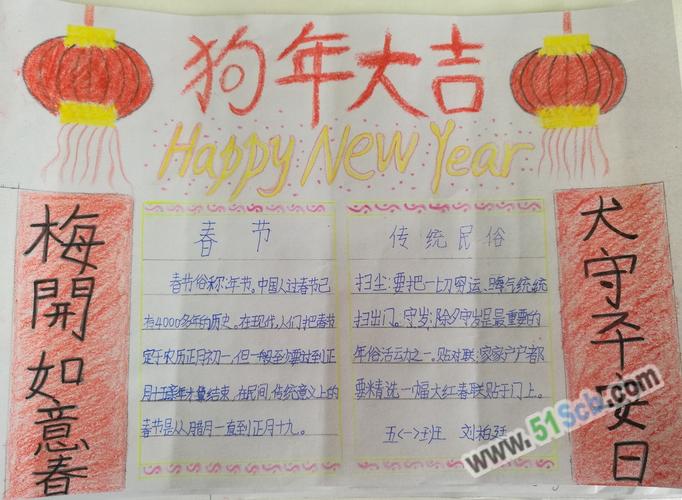 狗年大吉
Happy New Year
梅開如意春
春节
春节俗称:年节。中国人过春节已
有4000多年的历史。在现代,人们把春节
定于农历正月初一,但一般至少要过到正
月十五年才算结束,在民间,传统意义上的
春节是从腊月一直到正月十九。
传统民俗
扫尘:要把一切穷运、晦气统统
扫出门。守岁:除夕守岁是最重要的
年俗活动之一。贴对联:家家户户都
要精选一幅大红春联贴于门上。
五<一>班 刘柏
犬守平安日
www.51Scb.com